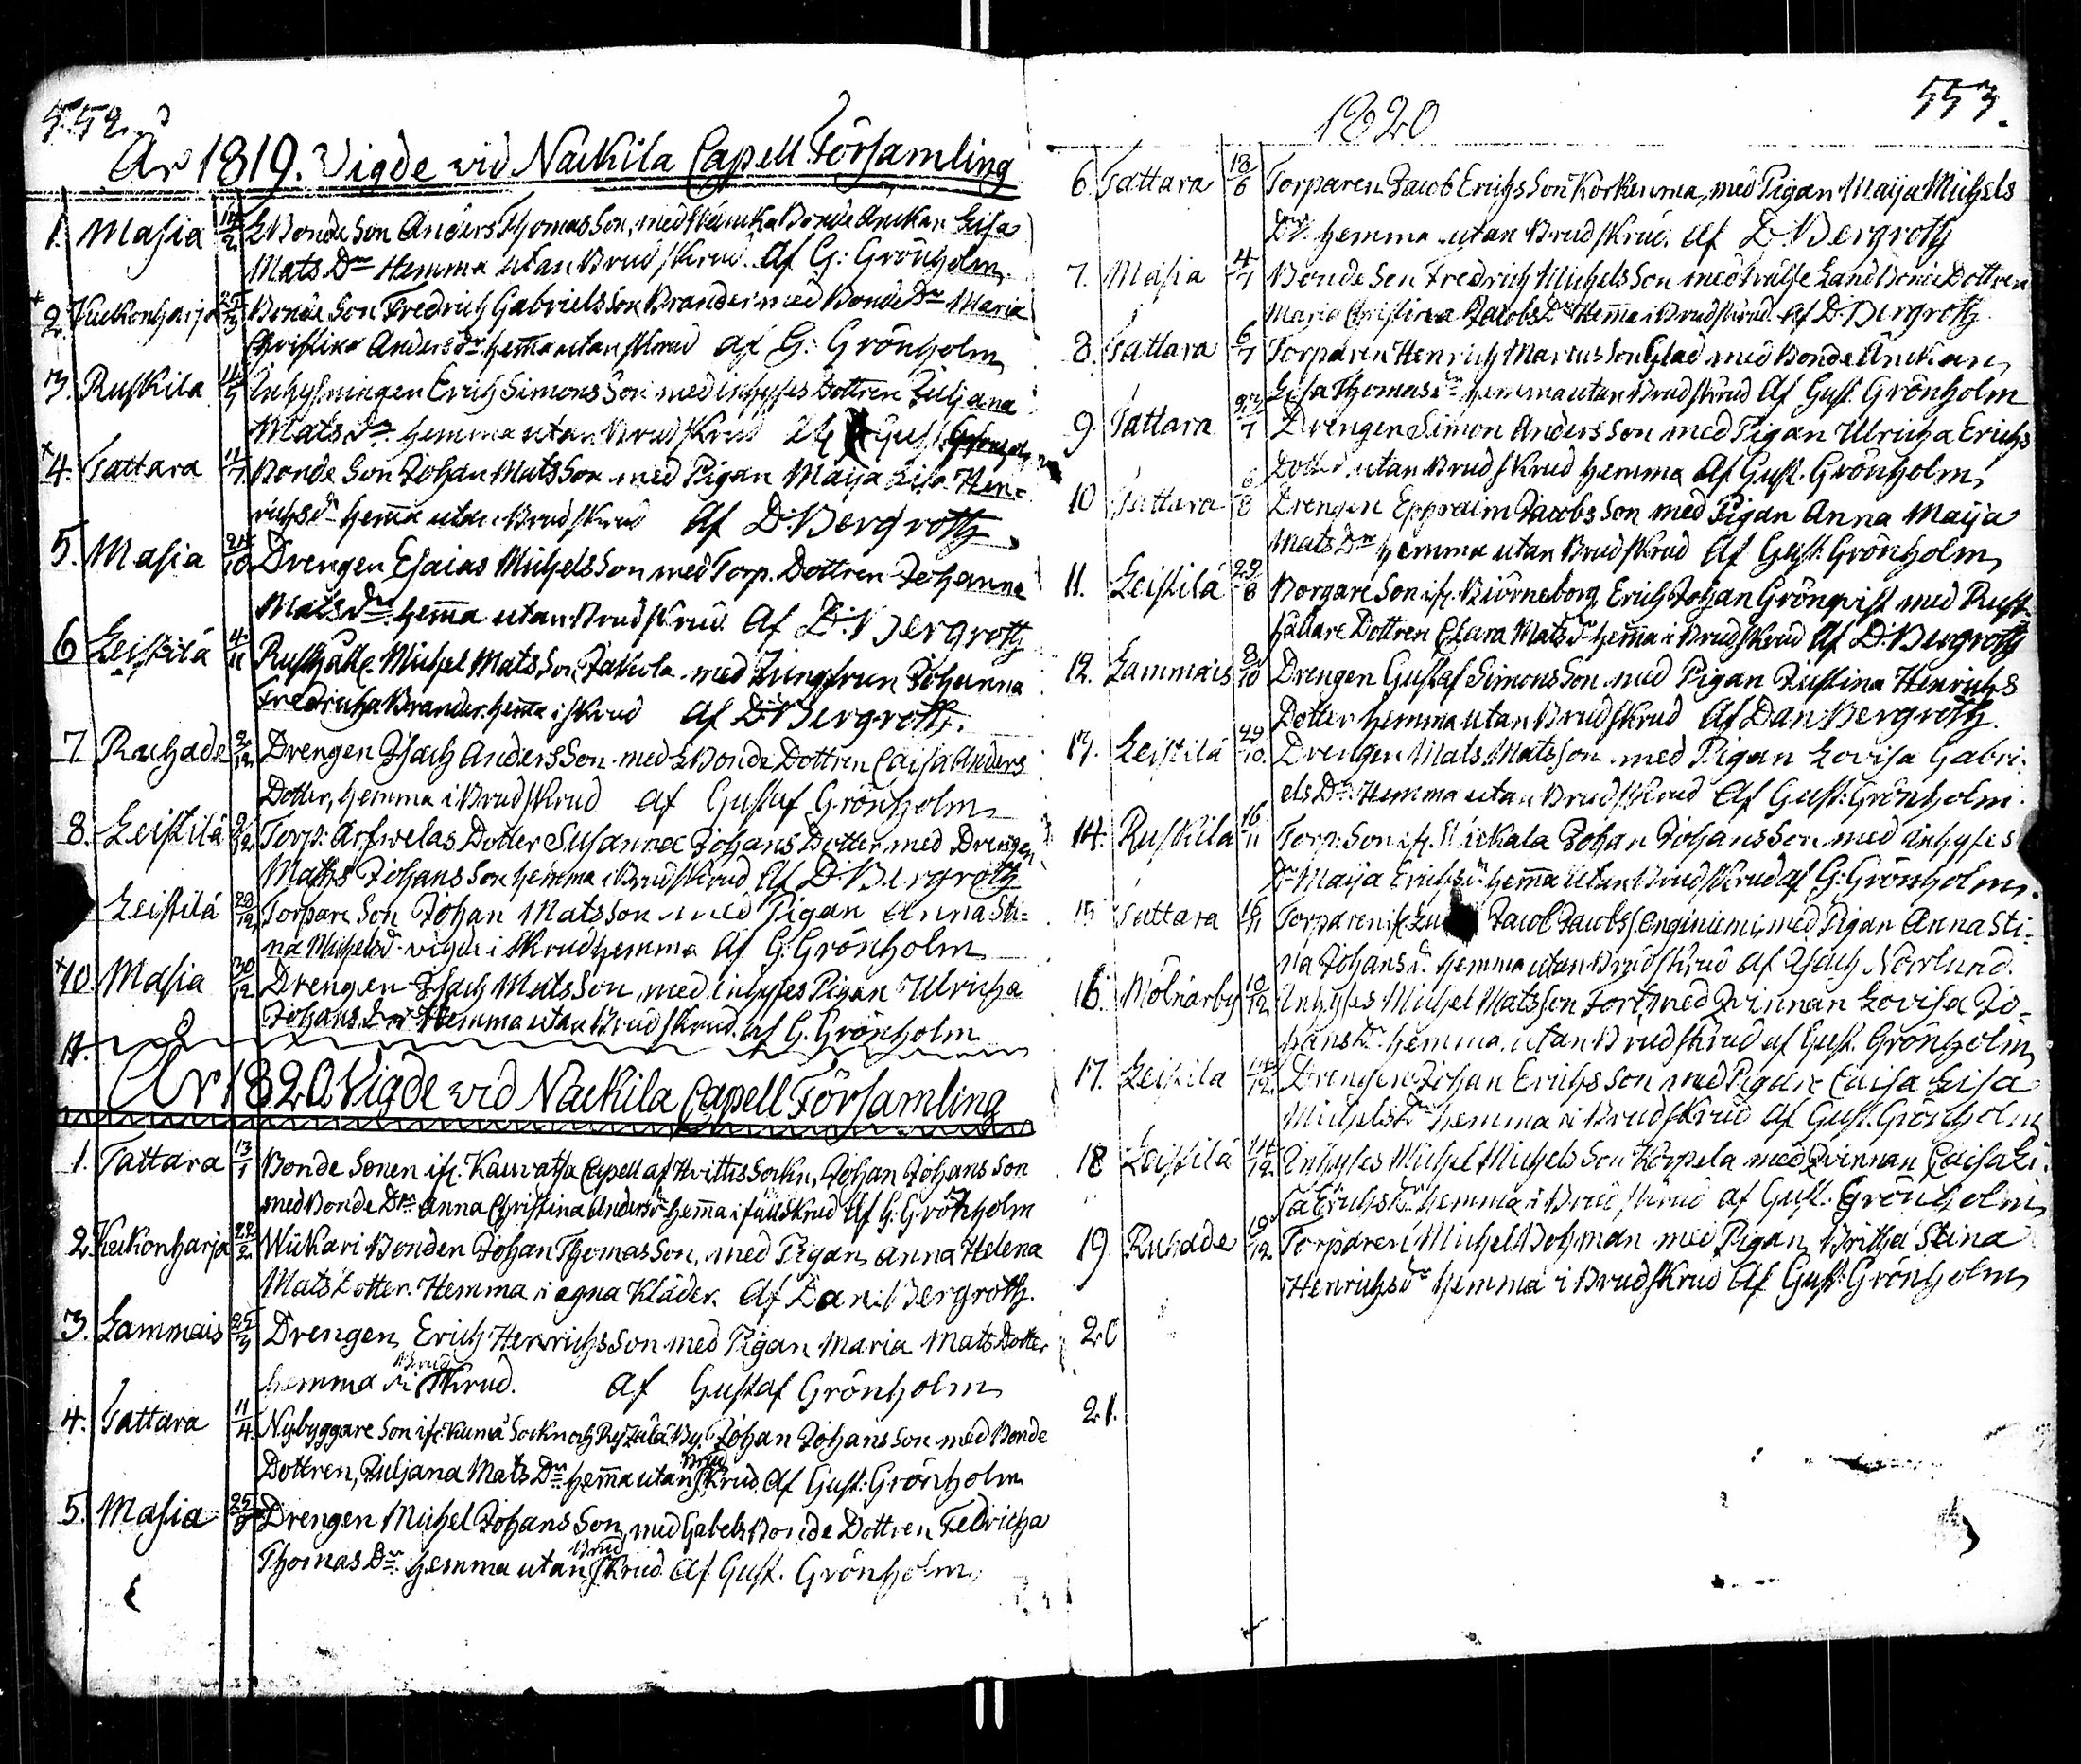 552.
År 1819. Vigde vid Nackila Capell Församling
1. Masia 14/2 L Bonde Son Anders Thomas Son, med Bonde Änckan Lisa
Mats Dr Hemma utan Brud skrud. Af G: Grönholm
2. Kuckonharja Bonde Son Fredrich Gabriels Son Brander med Bonde Dr Maria
Christina Anders dr hemma utan skrud af G: Grönholm
3. Ruskila Inhysningen Erich Simons Son med inhyses Dottren Juljana
Mats dr hemma utan Brud skrud af Gust Grönholm
4. Tattara 11/7 Bonde Son Johan Mats Son med Pigan Maija Lisa Hen=
richs dr hemma utan Brud skrud af D: Bergroth
5. Masia Drengen Esaias Michels Son med Torp. Dottren Johanna
Mats dr hemma utan Brud skrud. af D: Bergroth
6 Leistilä 4/11 Rusthåll: Michel Mats Son Jakola med Jungfrun Johanna
Fredricha Brander. hemma i skrud af D: Bergroth.
7 Ruhade Drengen Isach Anders Son med L Bonde Dottren Caisa Anders
Dotter, hemma i Brud skrud af Gustaf Grönholm
8. Leistilä Torp: Arfwelas Dotter Susanna Johans Dotter med Drengen
Mathts Johans Son hemma i Brud skrud af D: Bergroth
Leistilä 28/12 Torpare Son Johan Mats Son med Pigan Anna Sti=
na Michels dr vigde i skrud hemma af G: Grönholm
10. Masia 30/12 Drengen Isach Mats Son, med inhyses Pigan Ulricha
Johans Dr Hemma utan Brud skrud. af G. Grönholm
11.
År 1820 Vigde vid Nackila Capell Församling
1. Tattara 13/1 Bonde Sonen ifr. Kauvatsa Capell af Hvittis Sockn, Johan Johans Son
med Bonde Dr Anna Christina Anders dr hemma i full skrud af G: Grönholm
2. Kuckonharja 22/2 Wiikari Bonden Johan Thomas Son, med Pigan Anna Helena
Mats Dotter. Hemma i egna Kläder. Af Dan: Bergroth.
3. Lammais 25/3 Drengen Erich Henrichs Son med Pigan Maria Mats Dotter
hemma i Brud Skrud. af Gustaf Grönholm
4. Tattara 11/4 Nybyggare Son ifr. Kumå Sockn och By. Johan Johans Son med Bonde
Dottren, Juljana Mats Dr hemma utan Brud Skrud. Af Gust: Grönholm
5. Masia Drengen Michel Johans Son, med Gabels Bonde Dottren Fedricha
Thomas Dr hemma utan Brud Skrud. Af Gust. Grönholm
1820
553.
6. Tattara 18/6 Torparen Jacob Erichs Son Korkeuma, med Pigan Maija Michels
Dr. hemma utan Brud skrud. af D: Bergroth
7. Masia 4/7 Bonde Son Fredrich Michels Son med Frälse Land Bonde Dottren
Maria Christina Jacobs Dr Hemma i Brud skrud. af D: Bergroth
8. Tattara 6/7 Torparen Henrich Marcus Son Glad med Bonde Änckan
Lisa Thomas dr hemma utan Brud skrud Af Gust. Grönholm
9. Tattara Drengen Simon Anders Son med Pigan Ulricha Erichs
Dotter utan Brud skrud hemma Af Gust. Grönholm
10 Tattara 6/8 Drengen Ephraim Jacobs Son med Pigan Anna Maija
Mats Dr hemma utan Brud skrud Af Gust: Grönholm
11. Leistilä 29/8 Borgare Son ifr. Biörneborg Erich Johan Grönqvist med Rust
hållare Dottren Clara Mats dr hemma i Brud skrud Af D: Bergroth
12. Lammais 8/10 Drengen Gustaf Simons Son med Pigan Justina Henrichs
Dotter hemma utan Brud skrud Af Dan Bergroth.
13. Leistilä 29/10. Drengen Mats Mats Son med Pigan Lovisa Gabri=
els Dr Hemma utan Brud skrud Af Gust: Grönholm.
14. Ruskila 16/11 Torp: Son ifr. Johan Johans Son med inhyses
Dr Maija Erichs dr hemma utan Brud skrud af G: Grönholm.
15 Tattara Torparen ifr. Jacob Jacobs Son med Pigan Anna Sti=
na Johans dr. hemma utan Brud skrud af Isach Norrlund.
16. Mölnärby 10/12 Inhyses Michel Mats Son Fort, med Qvinnan Lovisa Jo=
hans Dr hemma. utan Brud skrud af Gust. Grönholm
17. Leistila 14/12. Drengen Johan Erichs Son med Pigan Caisa Lisa
Michels Dr hemma i Brud skrud af Gust. Grönholm
18 Leistilä 14/12 Inhyses Michel Michels Son Korpela med Qvinnan Caisa Li=
sa Erichs Dr hemma i Brud skrud af Gust. Grönholm
19. Ruhade 19/12 Torparen Michel Bohman med Pigan Britha Stina
Henrichs dr hemma i Brud skrud Af Gust: Grönholm
20
21.